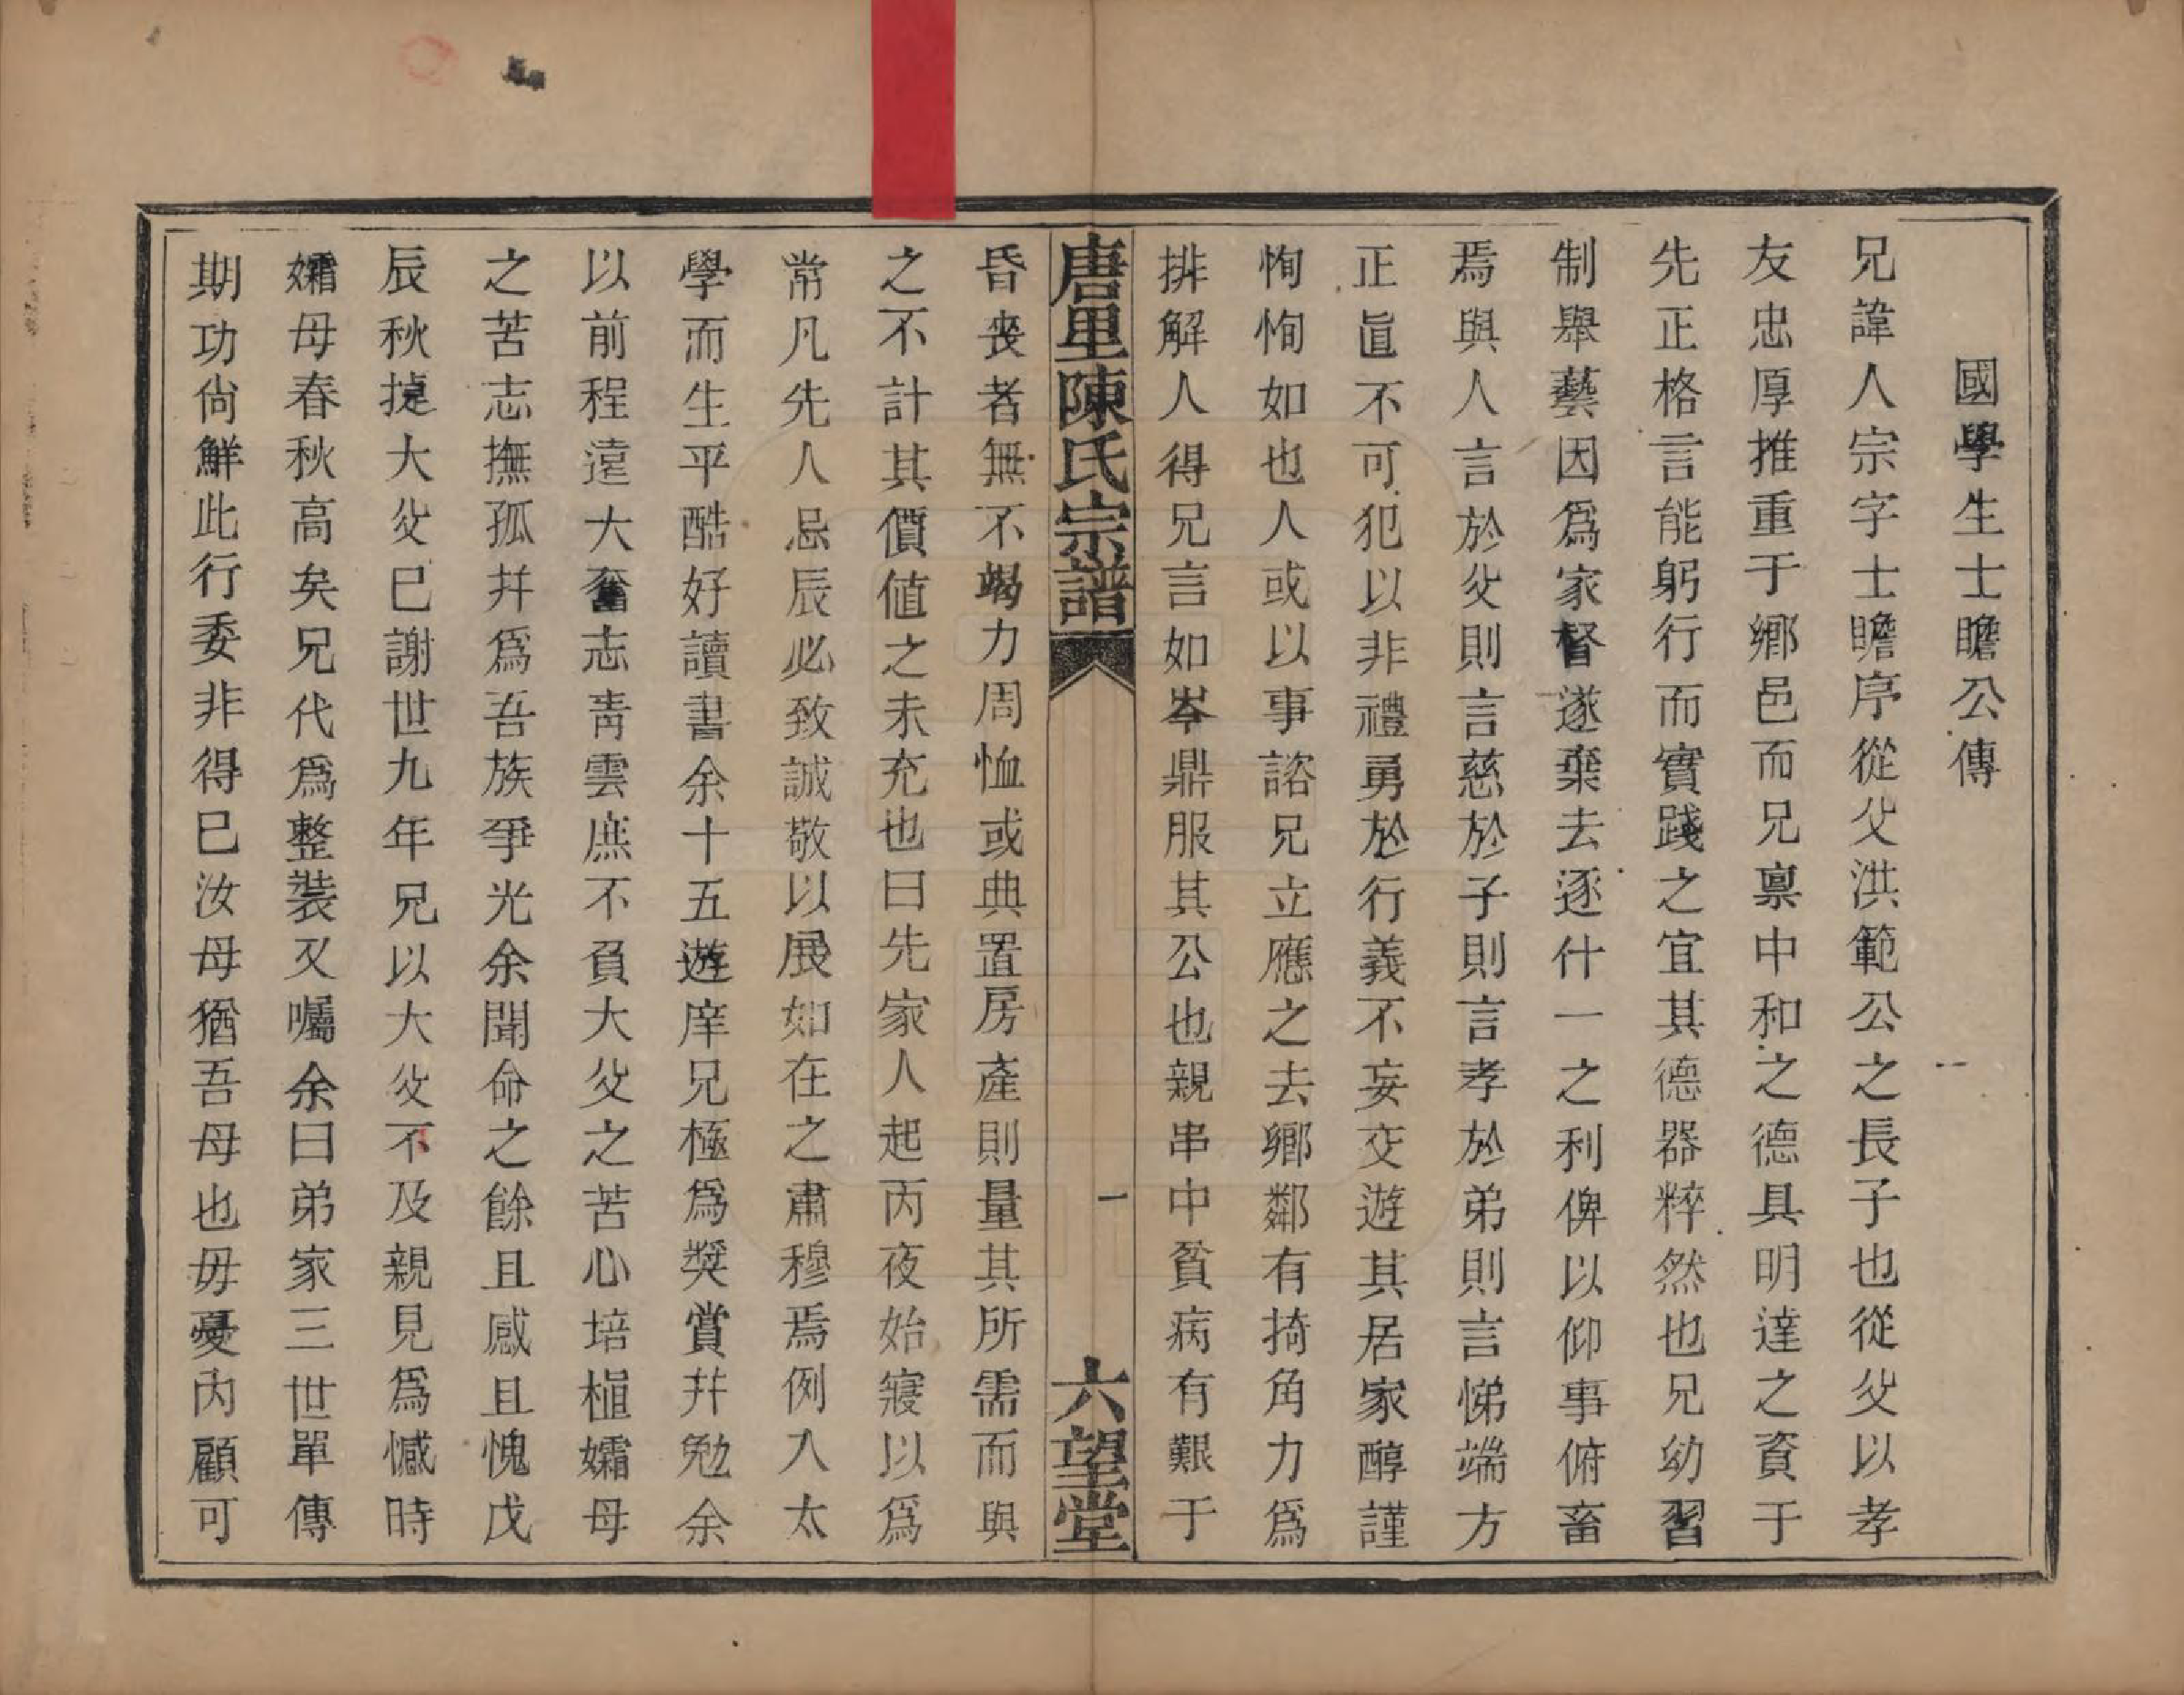 國學生士瞻公傳
兄諱人宗字士瞻序從父洪範公之長子也從父以孝
友忠厚推重于鄉邑而兄禀中和之德具明達之資于
先正格言能躬行而實踐之宜其德器粹然也兄幼習
制舉藝因爲家督遂棄去逐什一之利俾以仰事俯畜
焉與人言於父則言慈於子則言孝於弟則言悌端方
正直不可犯以非禮勇於行義不妄交遊其居家醇謹
恂恂如也人或以事諮兄立應之去鄉鄰有掎角力爲
排解人得兄言如岑鼎服其公也親串中貧病有艱于
唐里陳氏宗譜
一
六望堂
昏喪者無不竭力周恤或典置房產則量其所需而與
之不計其價值之未充也曰先家人起丙夜始寢以爲
常凡先人忌辰必致誠敬以展如在之肅穆焉例入太
學而生平酷好讀書余十五遊庠兄極爲獎賞幷勉余
以前程遠大奮志青雲庶不負大父之苦心培植孀母
之苦志撫孤幷爲吾族爭光余聞命之餘且感且愧戊
辰秋捷大父已謝世九年兄以大父不及親見爲憾時
孀母春秋高矣兄代爲整裝又囑余曰弟家三世單傳
期功尙鮮此行委非得已汝母猶吾母也毋憂內顧可